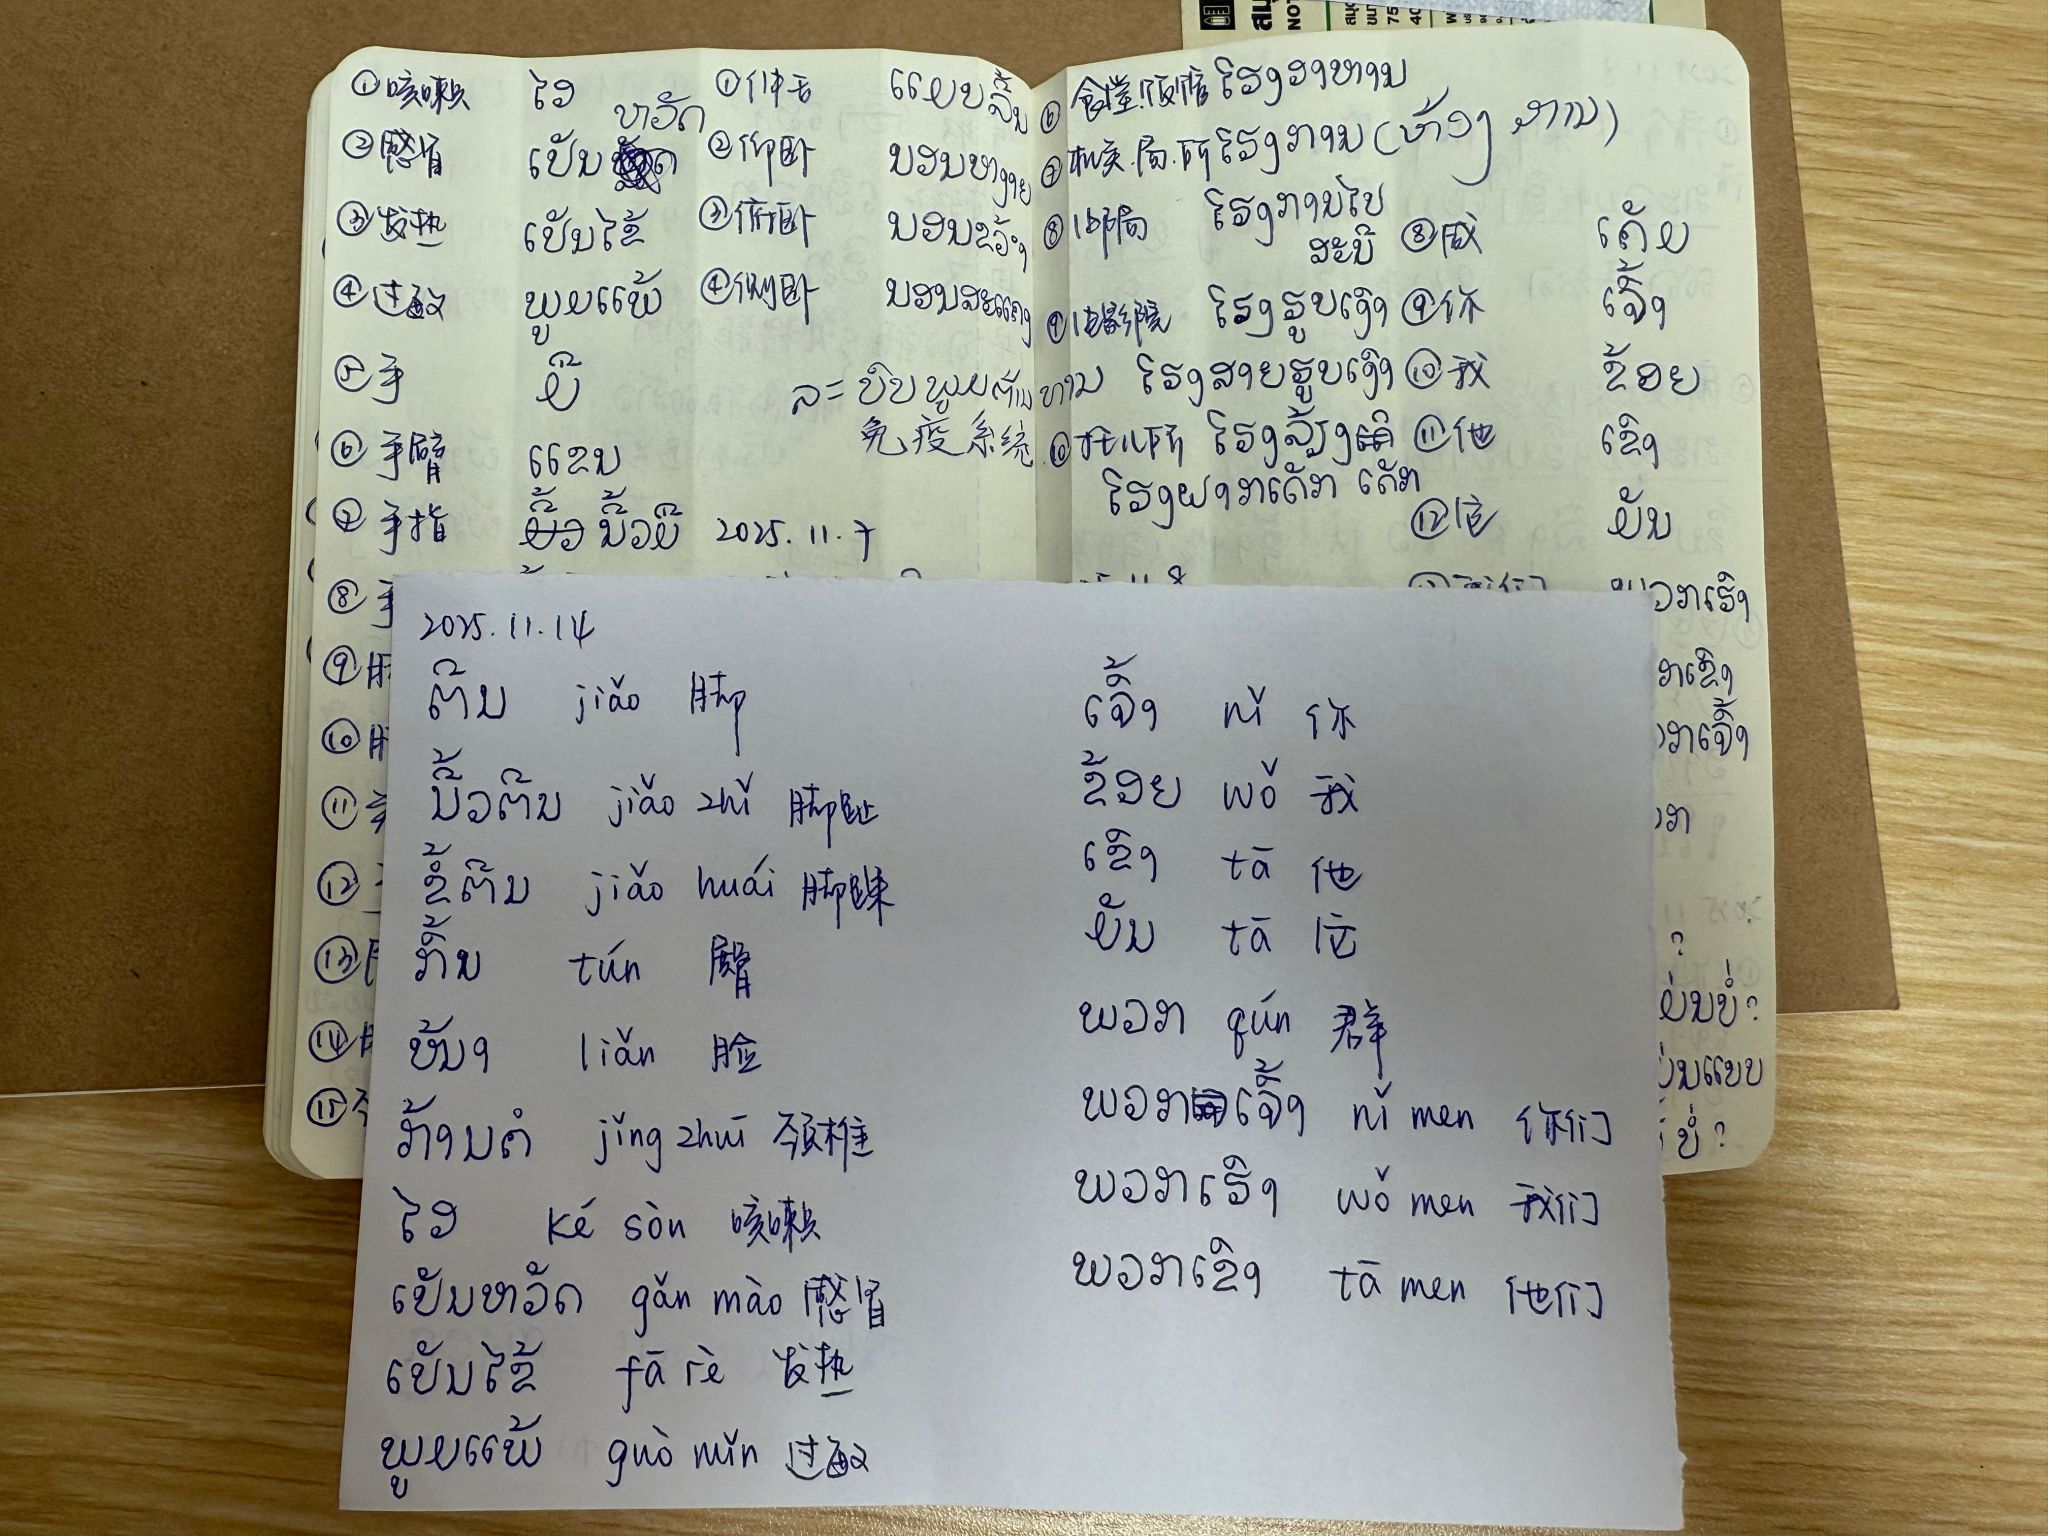 ① 咳嗽 ໄອ
ຫວັດ
② 感冒 ເປັນ
③ 发热 ເປັນໄຂ້
④ 过敏 ພູມແພ້
⑤ 手 ມື
⑥ 手臂 ແຂນ
⑦ 手指 ນິ້ວມື
① 伸舌 ແລບລີ້ນ
② 仰卧 ນອນຫງາຍ
③ 俯卧 ນອນຂວ້ຳ
④ 侧卧 ນອນຕະແຄງ
ລະບົບພູມຕ້ານທານ
免疫系统
2025.11.7
⑧ 手
⑨
⑩
⑪
⑫
⑬
⑭
⑮
⑥ 食堂.饭馆 ໂຮງອາຫານ
⑦ 机关.局.所 ໂຮງການ (ຫ້ອງການ)
⑧ 邮局 ໂຮງການໄປ
ສະນີ
⑨ 电影院 ໂຮງຮູບເງົາ
ໂຮງສາຍຮູບເງົາ
⑩ 托儿所 ໂຮງລ້ຽງ
ເດັກ
⑧ 咸 ເຄັມ
⑨ 你 ເຈົ້າ
⑩ 我 ຂ້ອຍ
⑪ 他 ເຂົາ
⑫ 它 ມັນ
ພວກເຮົາ
ກເຂົາ
ວກເຈົ້າ
ວກ
?
ແມ່ນບໍ່?
ບໍ່?
2025.11.14
ຕີນ jiǎo 脚
ນິ້ວຕີນ jiǎo zhǐ 脚趾
ຂໍ້ຕີນ jiǎo huái 脚踝
ກົ້ນ tún 臀
ໜ້າ liǎn 脸
ກ້ານຄໍ jǐng zhuī 颈椎
ໄອ ké sòn 咳嗽
ເປັນຫວັດ gǎn mào 感冒
ເປັນໄຂ້ fā rè 发热
ພູມແພ້ guò mǐn 过敏
ເຈົ້າ nǐ 你
ຂ້ອຍ wǒ 我
ເຂົາ tā 他
ມັນ tā 它
ພວກ qún 群
ພວກເຈົ້າ nǐ men 你们
ພວກເຮົາ wǒ men 我们
ພວກເຂົາ tā men 他们